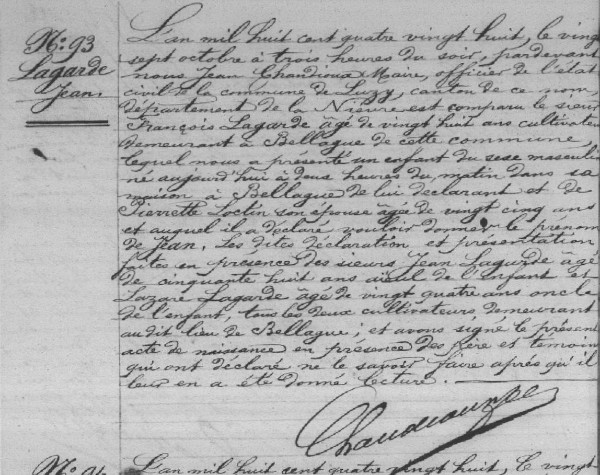 N.º 93
Lagarde
Jean.
L'an mil huit cent quatre vingt huit, le vingt
sept octobre à trois heures du soir, pardevant
nous Jean Chandioux Maire, officier de l'état
civil de la commune de Luzy, canton de ce nom,
département de la Nièvre est comparu le sieur
François Lagarde âgé de vingt huit ans cultivateur
demeurant à Bellague de cette commune,
lequel nous a présenté un enfant du sexe masculin
né aujourd'hui à deux heures du matin dans sa
maison à Bellague de lui déclarant et de
Pierrette Loctin son épouse âgée de vingt cinq ans
et auquel il a déclaré vouloir donner le prénom
de Jean. Les dites déclaration et présentation
faites en présence des sieurs Jean Lagarde âgé
de cinquante huit ans aïeul de l'enfant et
Lazare Lagarde âgé de vingt quatre ans oncle
de l'enfant, tous les deux cultivateurs demeurant
au dit lieu de Bellague; et avons signé le présent
acte de naissance en présence des père et témoins
qui ont déclaré ne le savoir faire après qu'il
leur en a été donné lecture.
Chandioux
N.º
L'an mil huit cent quatre vingt huit, le vingt